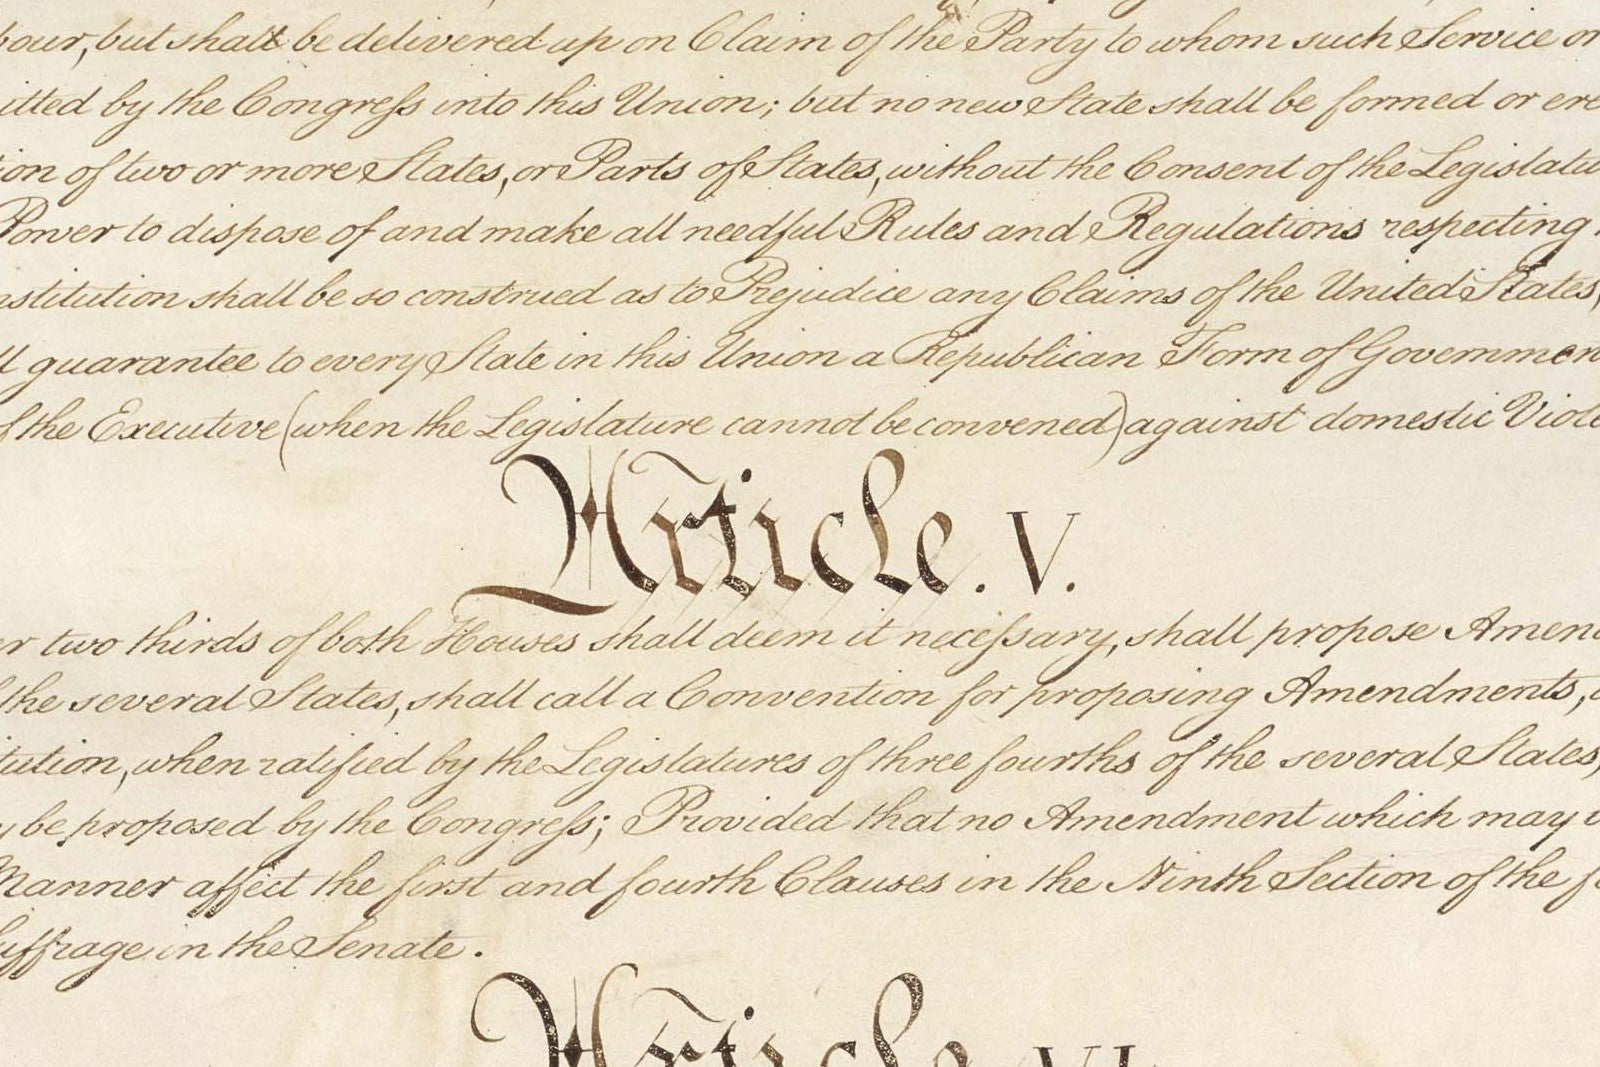 bour, but shall be delivered up on Claim of the Party to whom such Service or
itted by the Congress into this Union; but no new State shall be formed or ere
ion of two or more States, or Parts of States, without the Consent of the Legislatu
Power to dispose of and make all needful Rules and Regulations respecting
nstitution shall be so construed as to Prejudice any Claims of the United States,
ll guarantee to every State in this Union a Republican Form of Governmen
of the Executive (when the Legislature cannot be convened) against domestic Viole
Article. V.
er two thirds of both Houses shall deem it necessary, shall propose Amend
f the several States, shall call a Convention for proposing Amendments,
tution, when ratified by the Legislatures of three fourths of the several States,
y be proposed by the Congress; Provided that no Amendment which may
Manner affect the first and fourth Clauses in the Ninth Section of the f
uffrage in the Senate.
Article. VI.